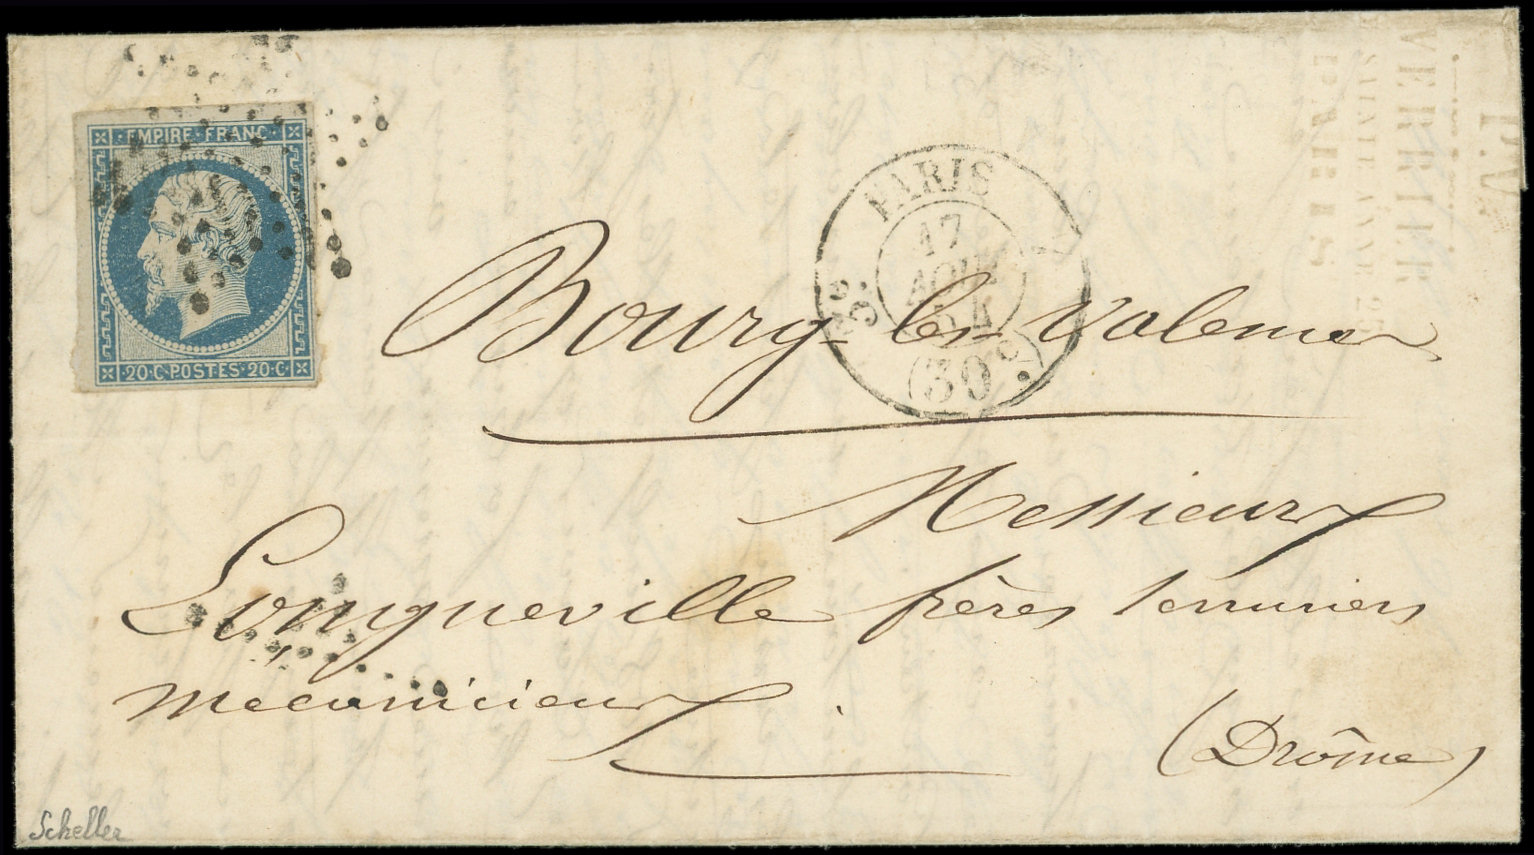 EMPIRE FRANC
20·C POSTES·20·C
PARIS
17
AOUT
54
(30c)
Bourg-les-Valence
Messieurs
Longueville frères serruriers
mecaniciens
(Drôme)
Scheller